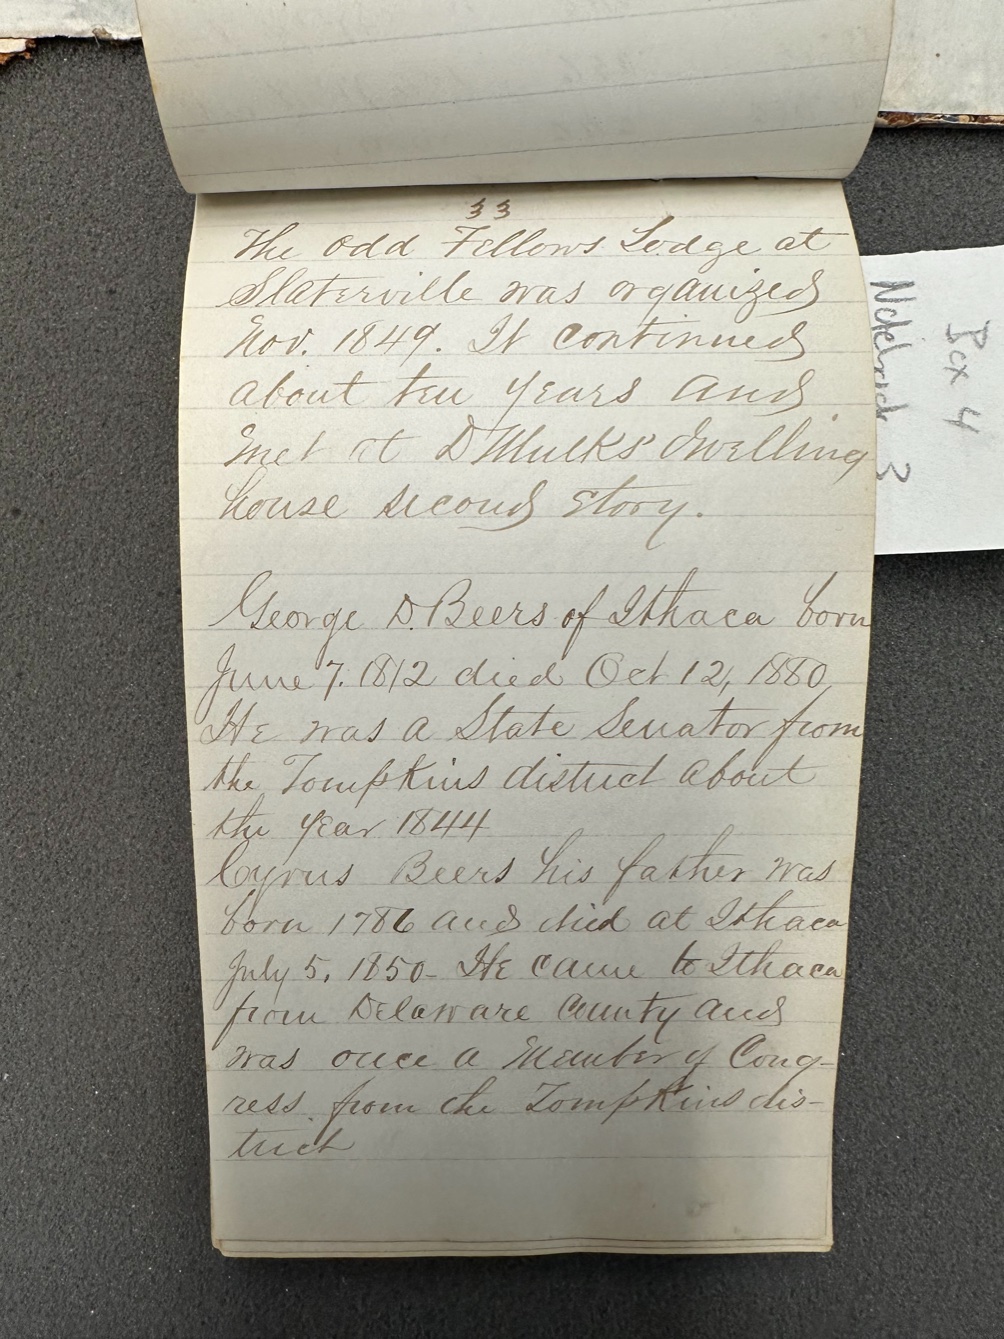 33
The Odd Fellows Lodge at
Slaterville was organized
Nov. 1849. It continued
about ten years and
met at D Mulks dwelling
house second story.
George D. Beers of Ithaca born
June 7. 1812 died Oct 12, 1880
He was a State Senator from
the Tompkins district about
the year 1844
Cyrus Beers his father was
born 1786 and died at Ithaca
July 5. 1850- He came to Ithaca
from Delaware County and
was once a Member of Cong-
ress from the Tompkins dis-
trict
Box 4
Notebook 3